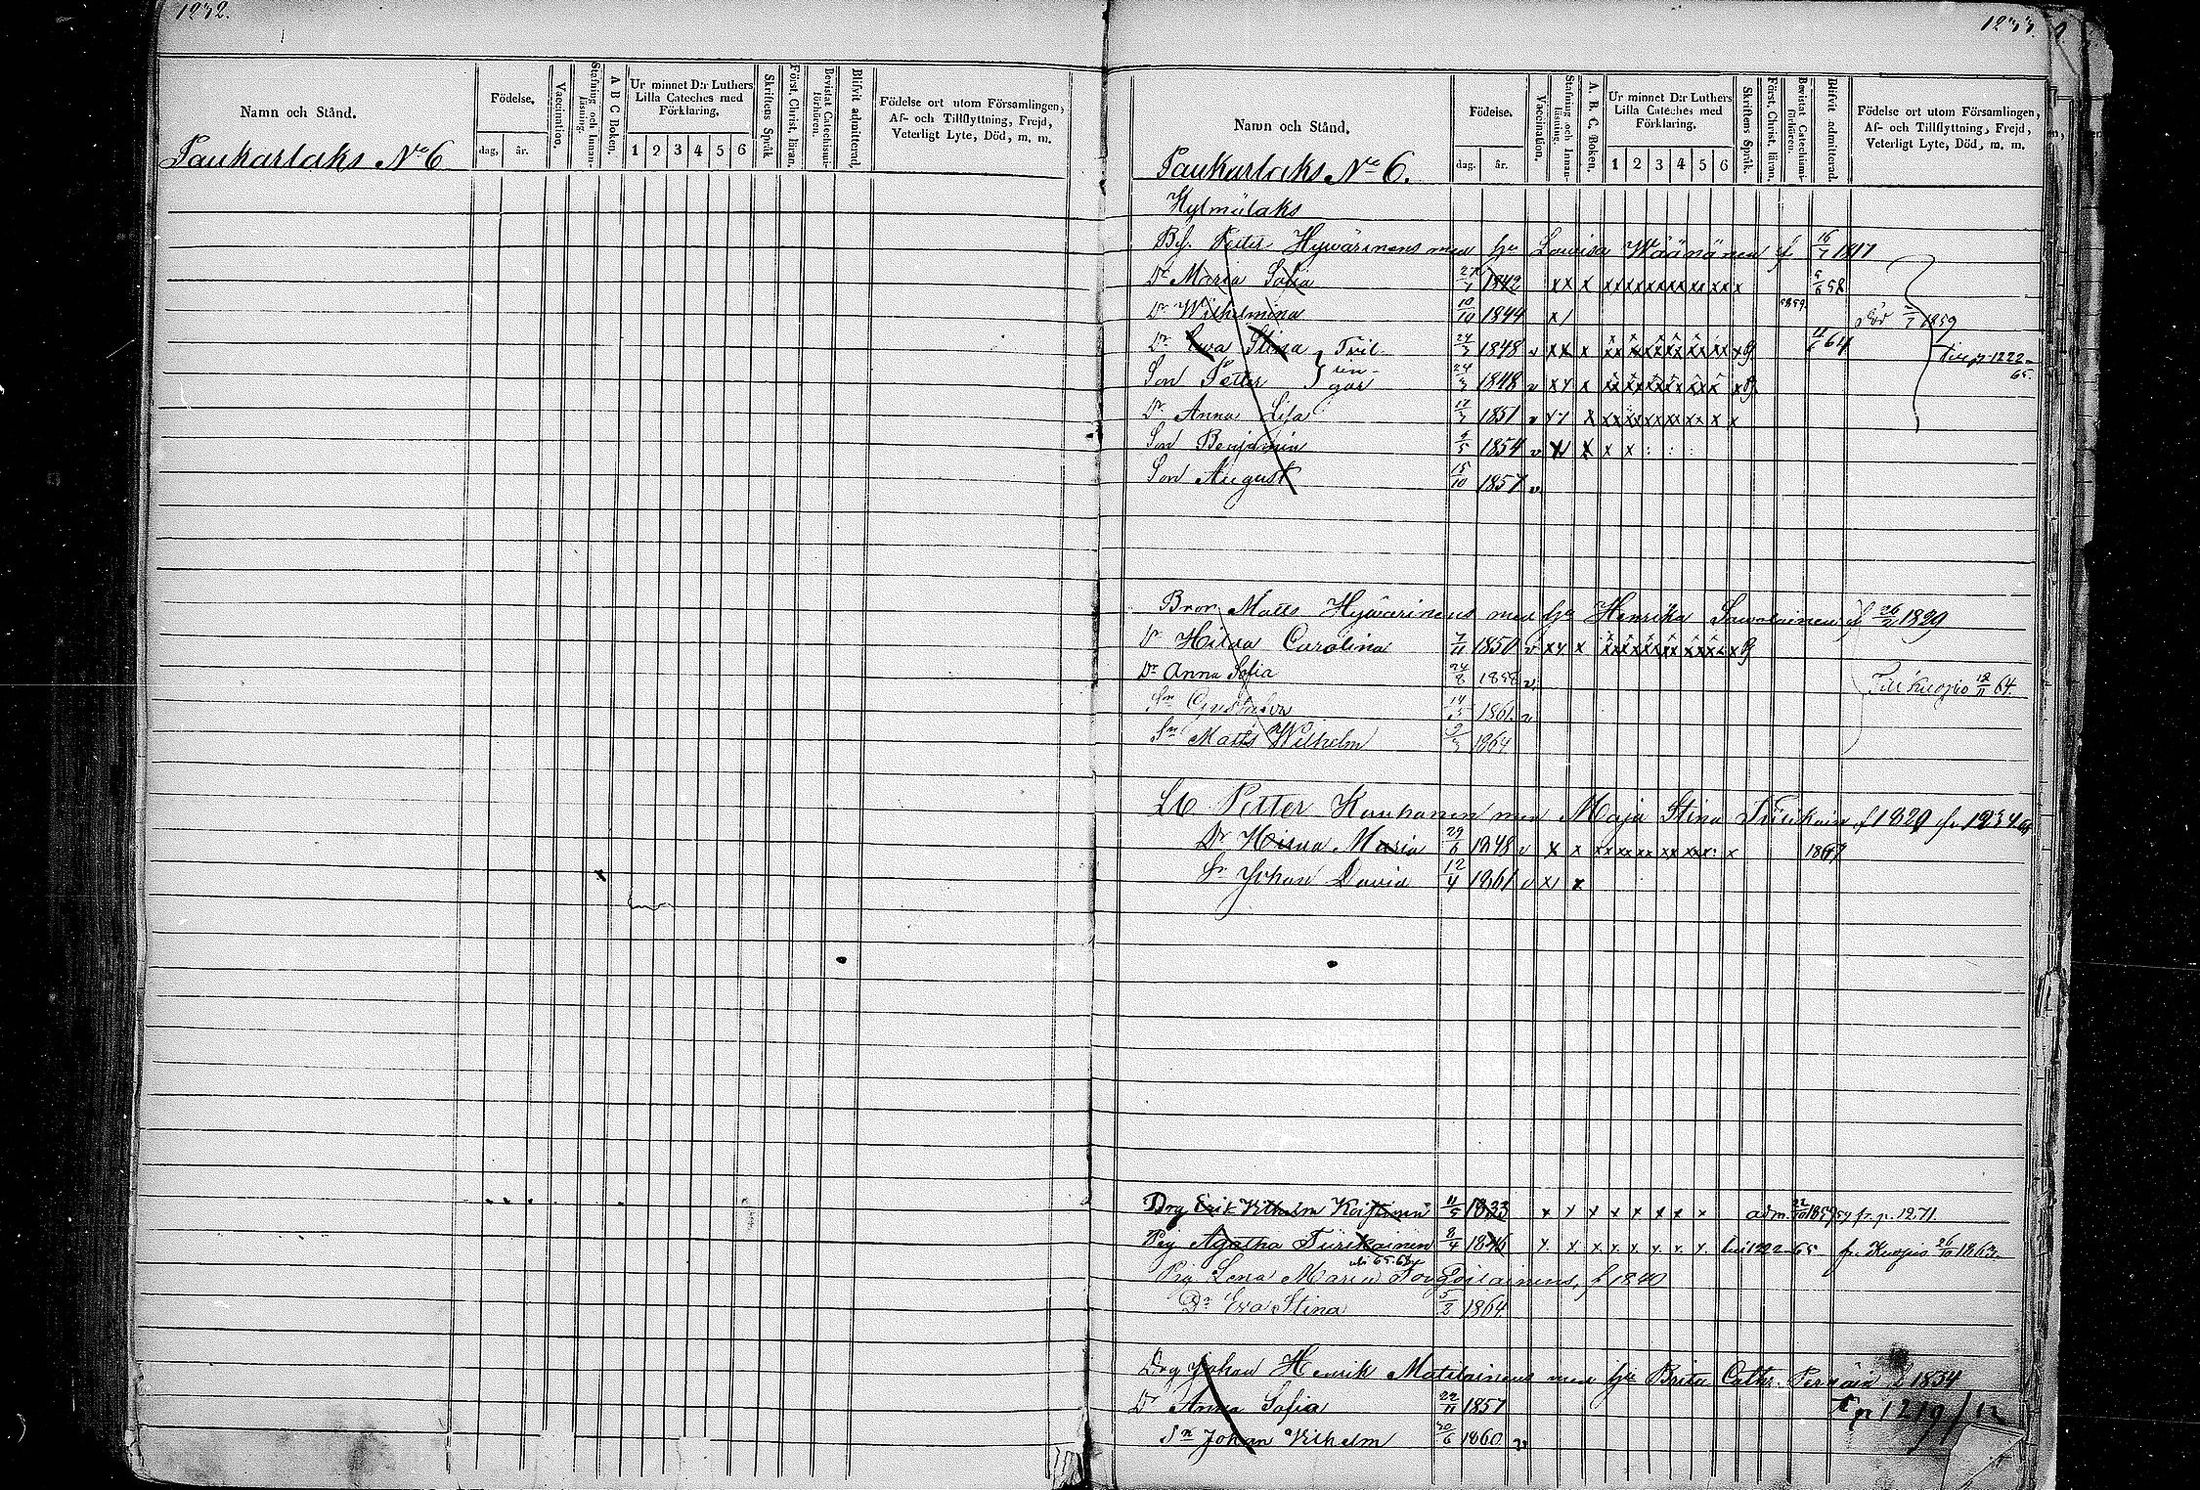 1232.
Namn och Stånd.
Födelse.
dag, år.
Vaccination.
Stafning och Innanläsning.
A B C Boken.
Ur minnet D:r Luthers Lilla Cateches med Förklaring.
1 2 3 4 5 6
Skriftens Språk
Först. Christ. läran.
Bevistat Catechismiförhören.
Blifvit admitterad
Födelse ort utom Församlingen,
Af- och Tillflyttning, Frejd,
Veterligt Lyte, Död, m. m.
Paukarlaks No 6
1233.
Namn och Stånd.
Födelse.
dag. år.
Vaccination.
Stafning och Innanläsning.
A. B. C. Boken.
Ur minnet D:r Luthers Lilla Cateches med Förklaring.
1 2 3 4 5 6
Skriftens Språk.
Först. Christ. läran.
Bevistat Catechismiförhören.
Blifvit admitterad.
Födelse ort utom Församlingen,
Af- och Tillflyttning, Frejd,
Veterligt Lyte, Död, m. m.
Paukarlaks No 6.
Kylmälaks
Petter Hyvärinens med hu Lovisa Wäänänen f 16/7 1817
Dr Maria Sofia 27/7 1842 x x x x x x x x x x x x x 5/6 58
Dr Wilhelmina 10/10 1844 x / 1859 död 7/7 1859
Dr Ewa Stina Tvil- 24/3 1848 v x x x 64 Till p 1222-65
Son Petter lingar 24/3 1848 v x x x
Dr Anna Lisa 17/3 1851
Son Benjamin 9/5 1854 v
Son August 15/10 1857 v
Bror Matts Hyvärinens med hu Henrika Sawolainen f 26/2 1829
Dr Hilda Carolina 7/11 1850 v x x x
Dr Anna Sofia 24/8 1858 v
Sn Gustava 14/5 1861 v Till Kuopio 18/11 64.
Sn Matts Wilhelm 9/3 1864
Petter Kauhanen med Maja Stina Tiirikain f 1829 fr 1234
Dr Hilda Maria 29/6 1848 v x x 1867
Sn Johan David 12/4 1861 v x x
Drg Erik Vilhelm Koistinen 11/5 1833 x x x x x x x x adm. fr. p. 1271.
Pig Agatha Tiirikainen 8/4 1846 x x x x x x x x till 1222-65 fr. Kuopio 26/10 1863
Pig Lena Maria Toivoilainens, f 1840
Dr Eva Stina 5/2 1864.
Drg Johan Henrik Matilainens med hu Brita Cathr. f 1834
Dr Anna Sofia 22/11 1857 T p 1219/
Sn Johan Vilhelm 30/6 1860 v